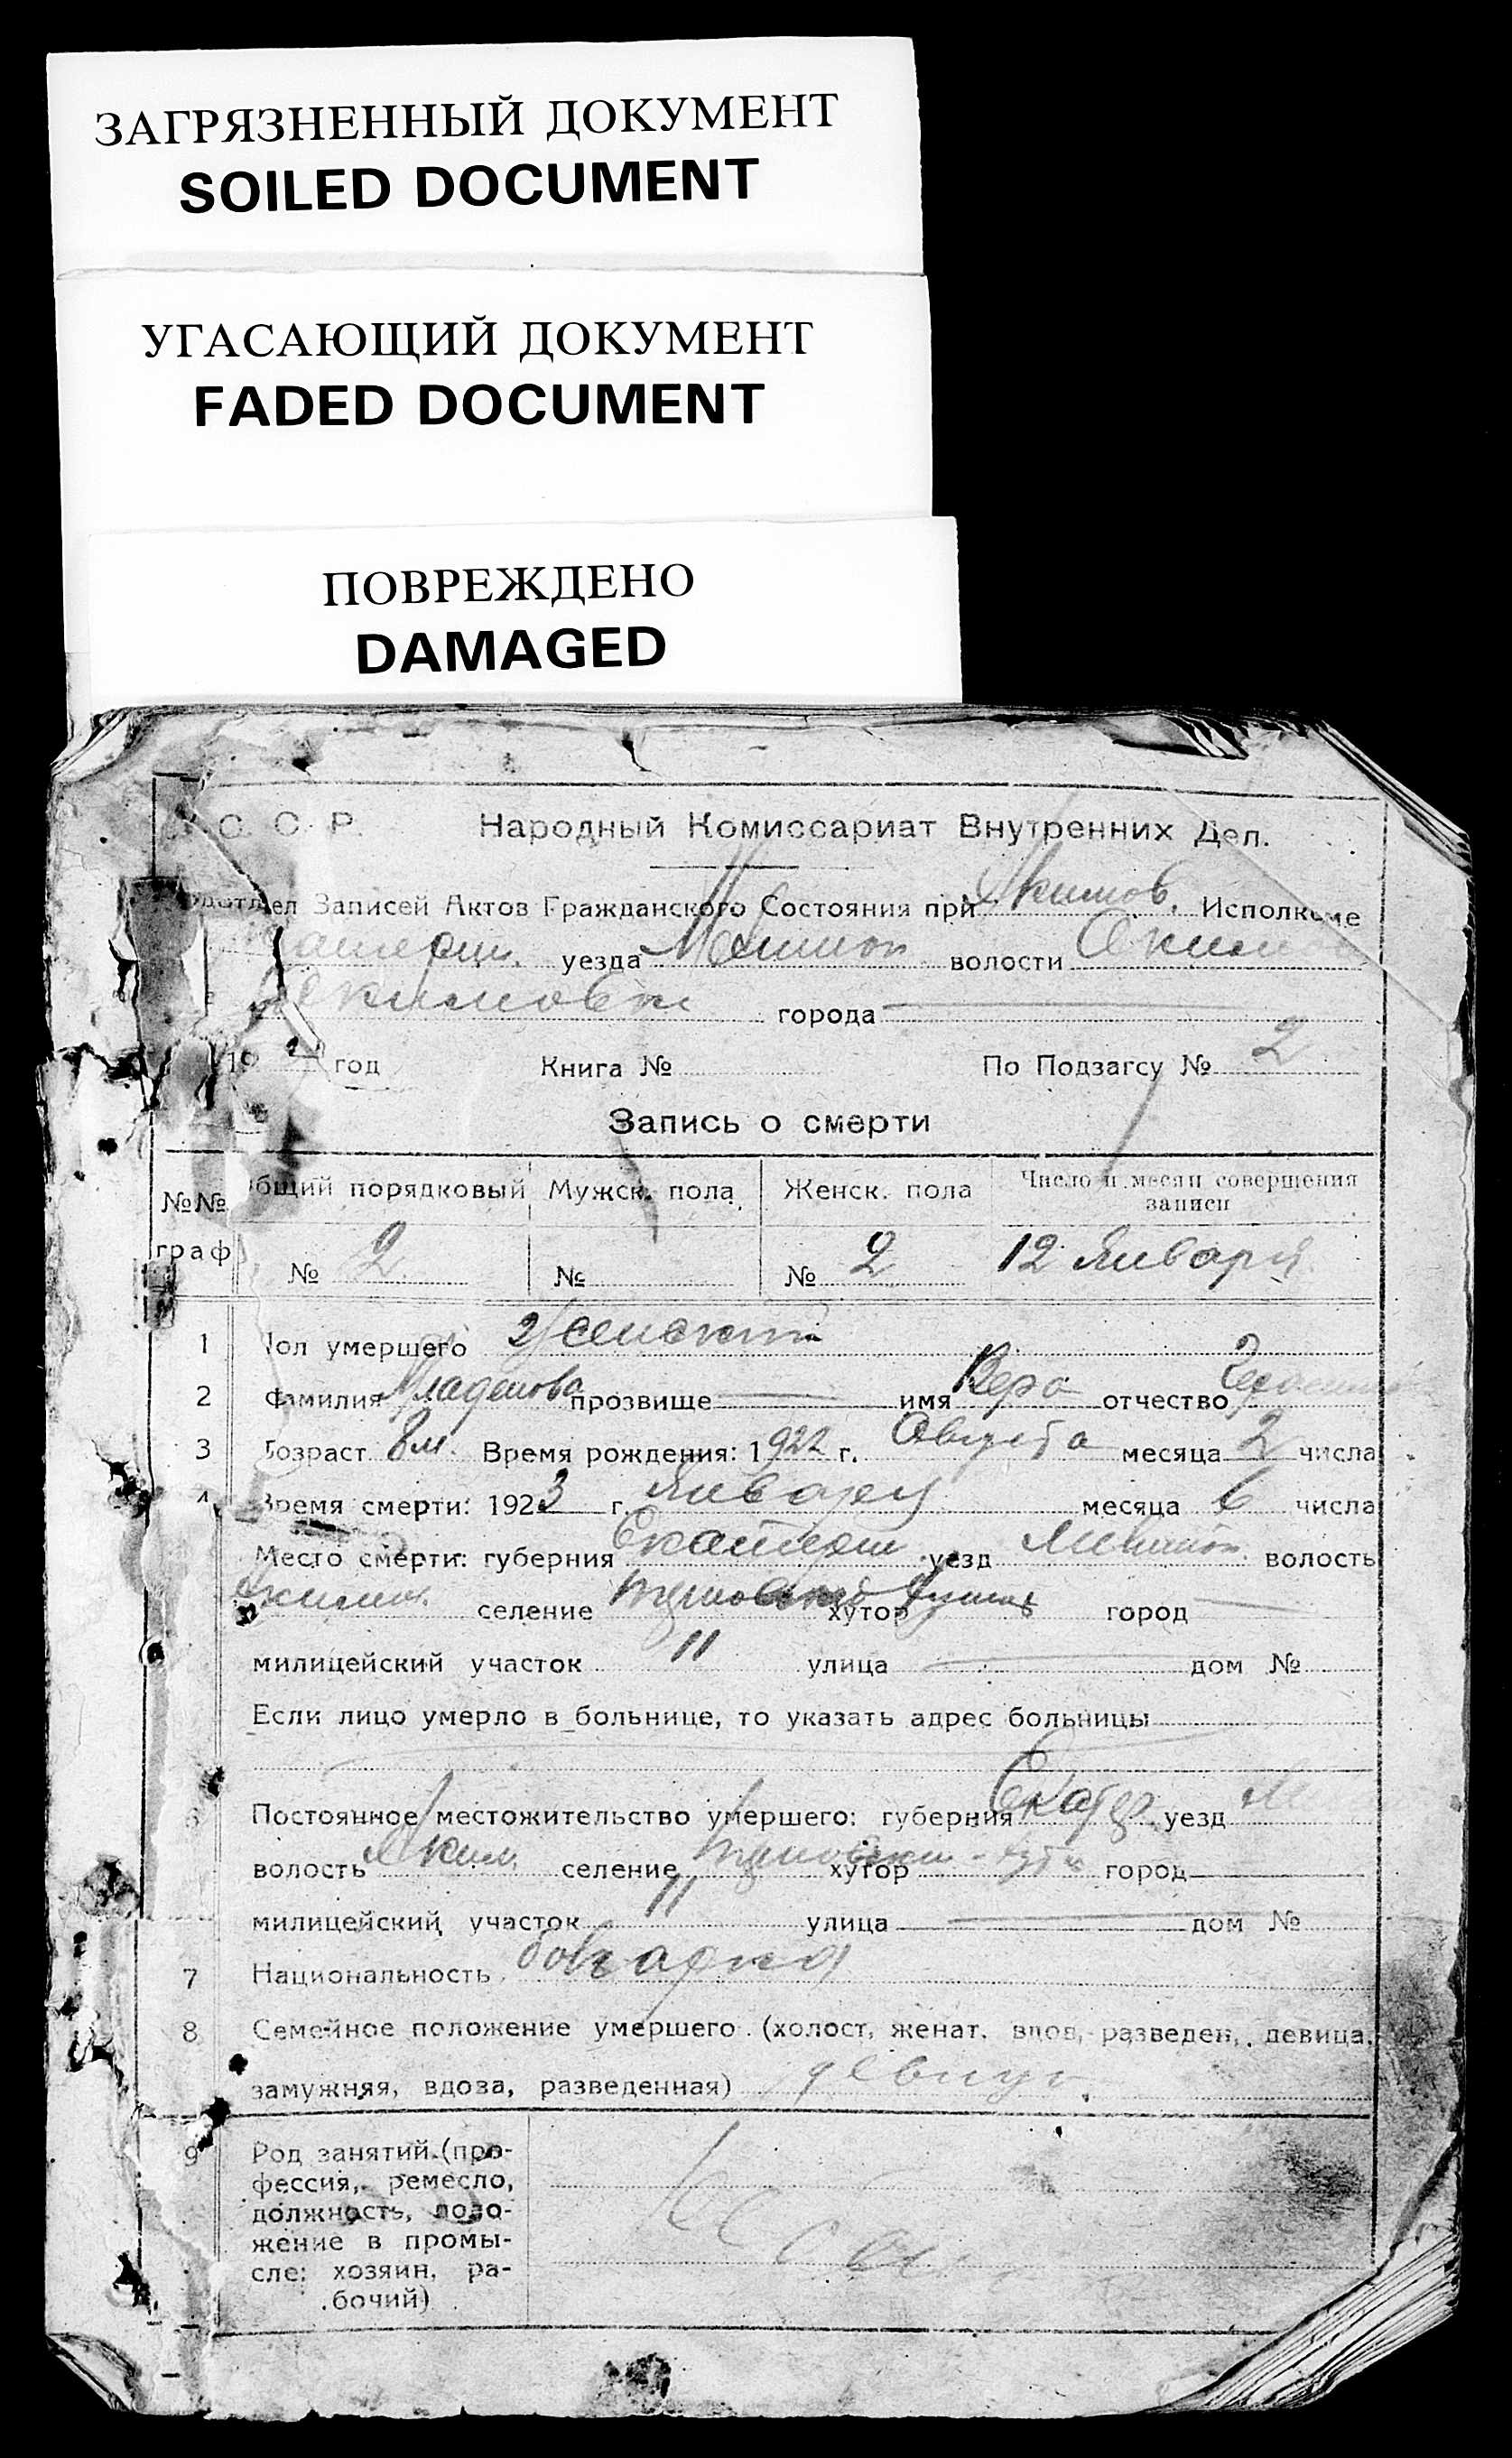 ЗАГРЯЗНЕННЫЙ ДОКУМЕНТ
SOILED DOCUMENT
УГАСАЮЩИЙ ДОКУМЕНТ
FADED DOCUMENT
ПОВРЕЖДЕНО
DAMAGED
С. С. Р. Народный Комиссариат Внутренних Дел.
Записей Актов Гражданского Состояния при Акимов. Исполкоме
уезда волости Акимов
Акимовки города
19 год Книга № По Подзагсу № 2
Запись о смерти
№№ общий порядковый Мужск. пола Женск. пола Число и месяц совершения записи
граф № 2 № № 2 12 Января
1 Пол умершего Женский
2 Фамилия Младенова прозвище имя Вера отчество
3 Возраст 8 м. Время рождения: 1922 г. Августа месяца 2 числа
4 Время смерти: 1923 г. Января месяца 6 числа
Место смерти: губерния Екатерин уезд Мелитоп. волость
Аким. селение хутор город
милицейский участок 11 улица дом №
Если лицо умерло в больнице, то указать адрес больницы
6 Постоянное местожительство умершего: губерния Екатер. уезд
волость Аким. селение хутор город
милицейский участок 11 улица дом №
7 Национальность болгарка
8 Семейное положение умершего (холост, женат, вдов, разведен, девица,
замужняя, вдова, разведенная) девица.
9 Род занятий (про-
фессия, ремесло,
должность, поло-
жение в промы-
сле: хозяин, ра-
бочий)